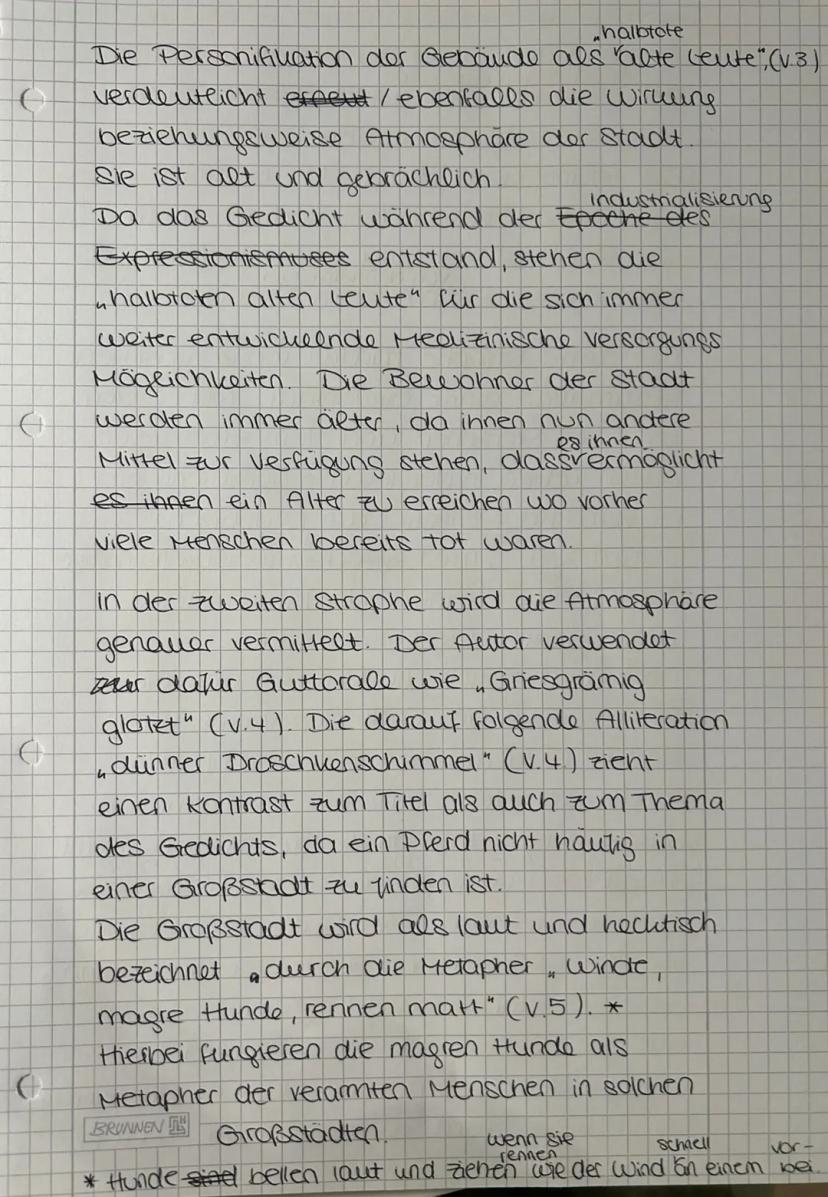 „halbtote
Die Personifikation der Gebäude als "alte Leute",(V.3)
verdeutlicht erneut / ebenfalls die Wirkung
beziehungsweise Atmosphäre der Stadt.
Sie ist alt und gebrächlich.
Industrialisierung
Da das Gedicht während der Epoche des
Expressionismuses entstand, stehen die
„halbtoten alten Leute" für die sich immer
weiter entwickelnde Medizinische versorgungs
Möglichkeiten. Die Bewohner der Stadt
werden immer älter, da ihnen nun andere
es ihnen
Mittel zur Verfügung stehen, dass vermöglicht
es ihnen ein Alter zu erreichen wo vorher
viele Menschen bereits tot waren.
In der zweiten Strophe wird die Atmosphäre
genauer vermittelt. Der Autor verwendet
dafür Guttorale wie „Griesgrämig
glotzt" (V.4). Die darauf folgende Alliteration
„dünner Droschkenschimmel" (V.4) zieht
einen Kontrast zum Titel als auch zum Thema
des Gedichts, da ein Pferd nicht häufig in
einer Großstadt zu finden ist.
Die Großstadt wird als laut und hecktisch
bezeichnet durch die Metapher „Winde,
magre Hunde, rennen matt" (V.5). *
Hierbei fungieren die magren Hunde als
Metapher der verarmten Menschen in solchen
BRUNNEN Großstädten.
wenn sie schnell vor-
rennen
* Hunde sind bellen laut und ziehen wie der Wind an einem bei.